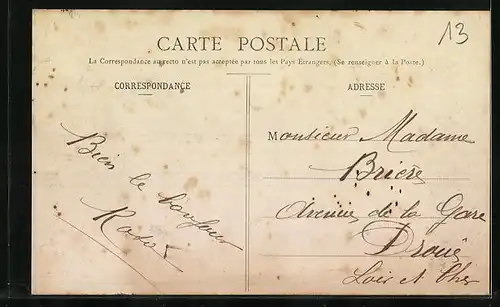 13
CARTE POSTALE
La Correspondance au recto n'est pas acceptée par tous les Pays Etrangers. (Se renseigner à la Poste.)
CORRESPONDANCE
Bien le bonjour
ADRESSE
Monsieur Madame
Brière
Avenue de la Gare
Droué
Loir et Cher